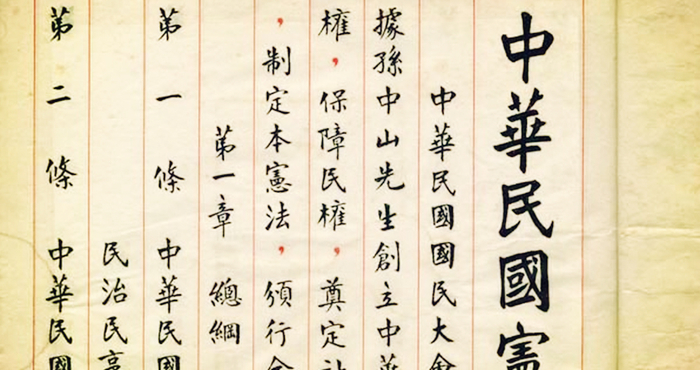 中華民國憲
中華民國國民大會
據孫中山先生創立中華
權，保障民權，奠定社
，制定本憲法，頒行全
第一章 總綱
第一條 中華民國
民治民享
第二條 中華民國